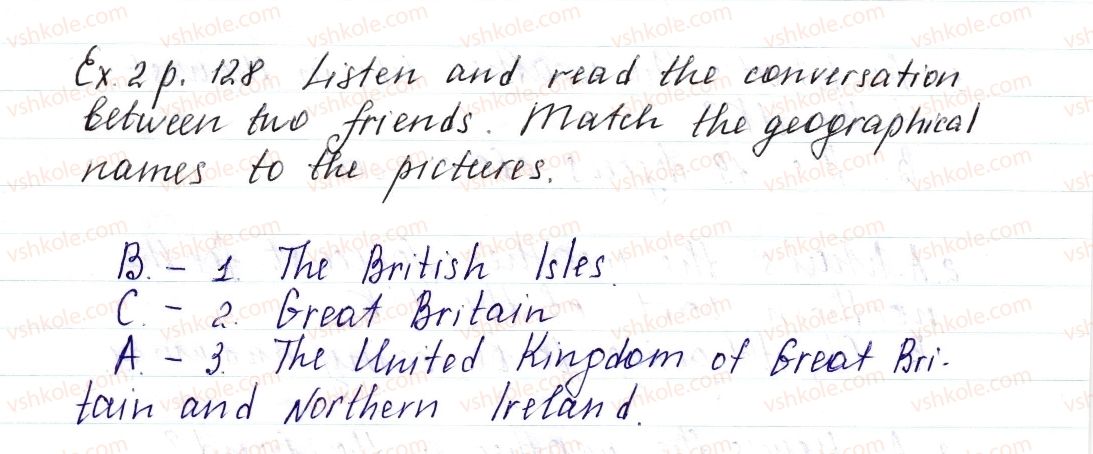 Ex. 2 p. 128. Listen and read the conversation
between two friends. Match the geographical
names to the pictures.
B. - 1. The British Isles.
C. - 2. Great Britain
A. - 3. The United Kingdom of Great Bri-
tain and Northern Ireland.